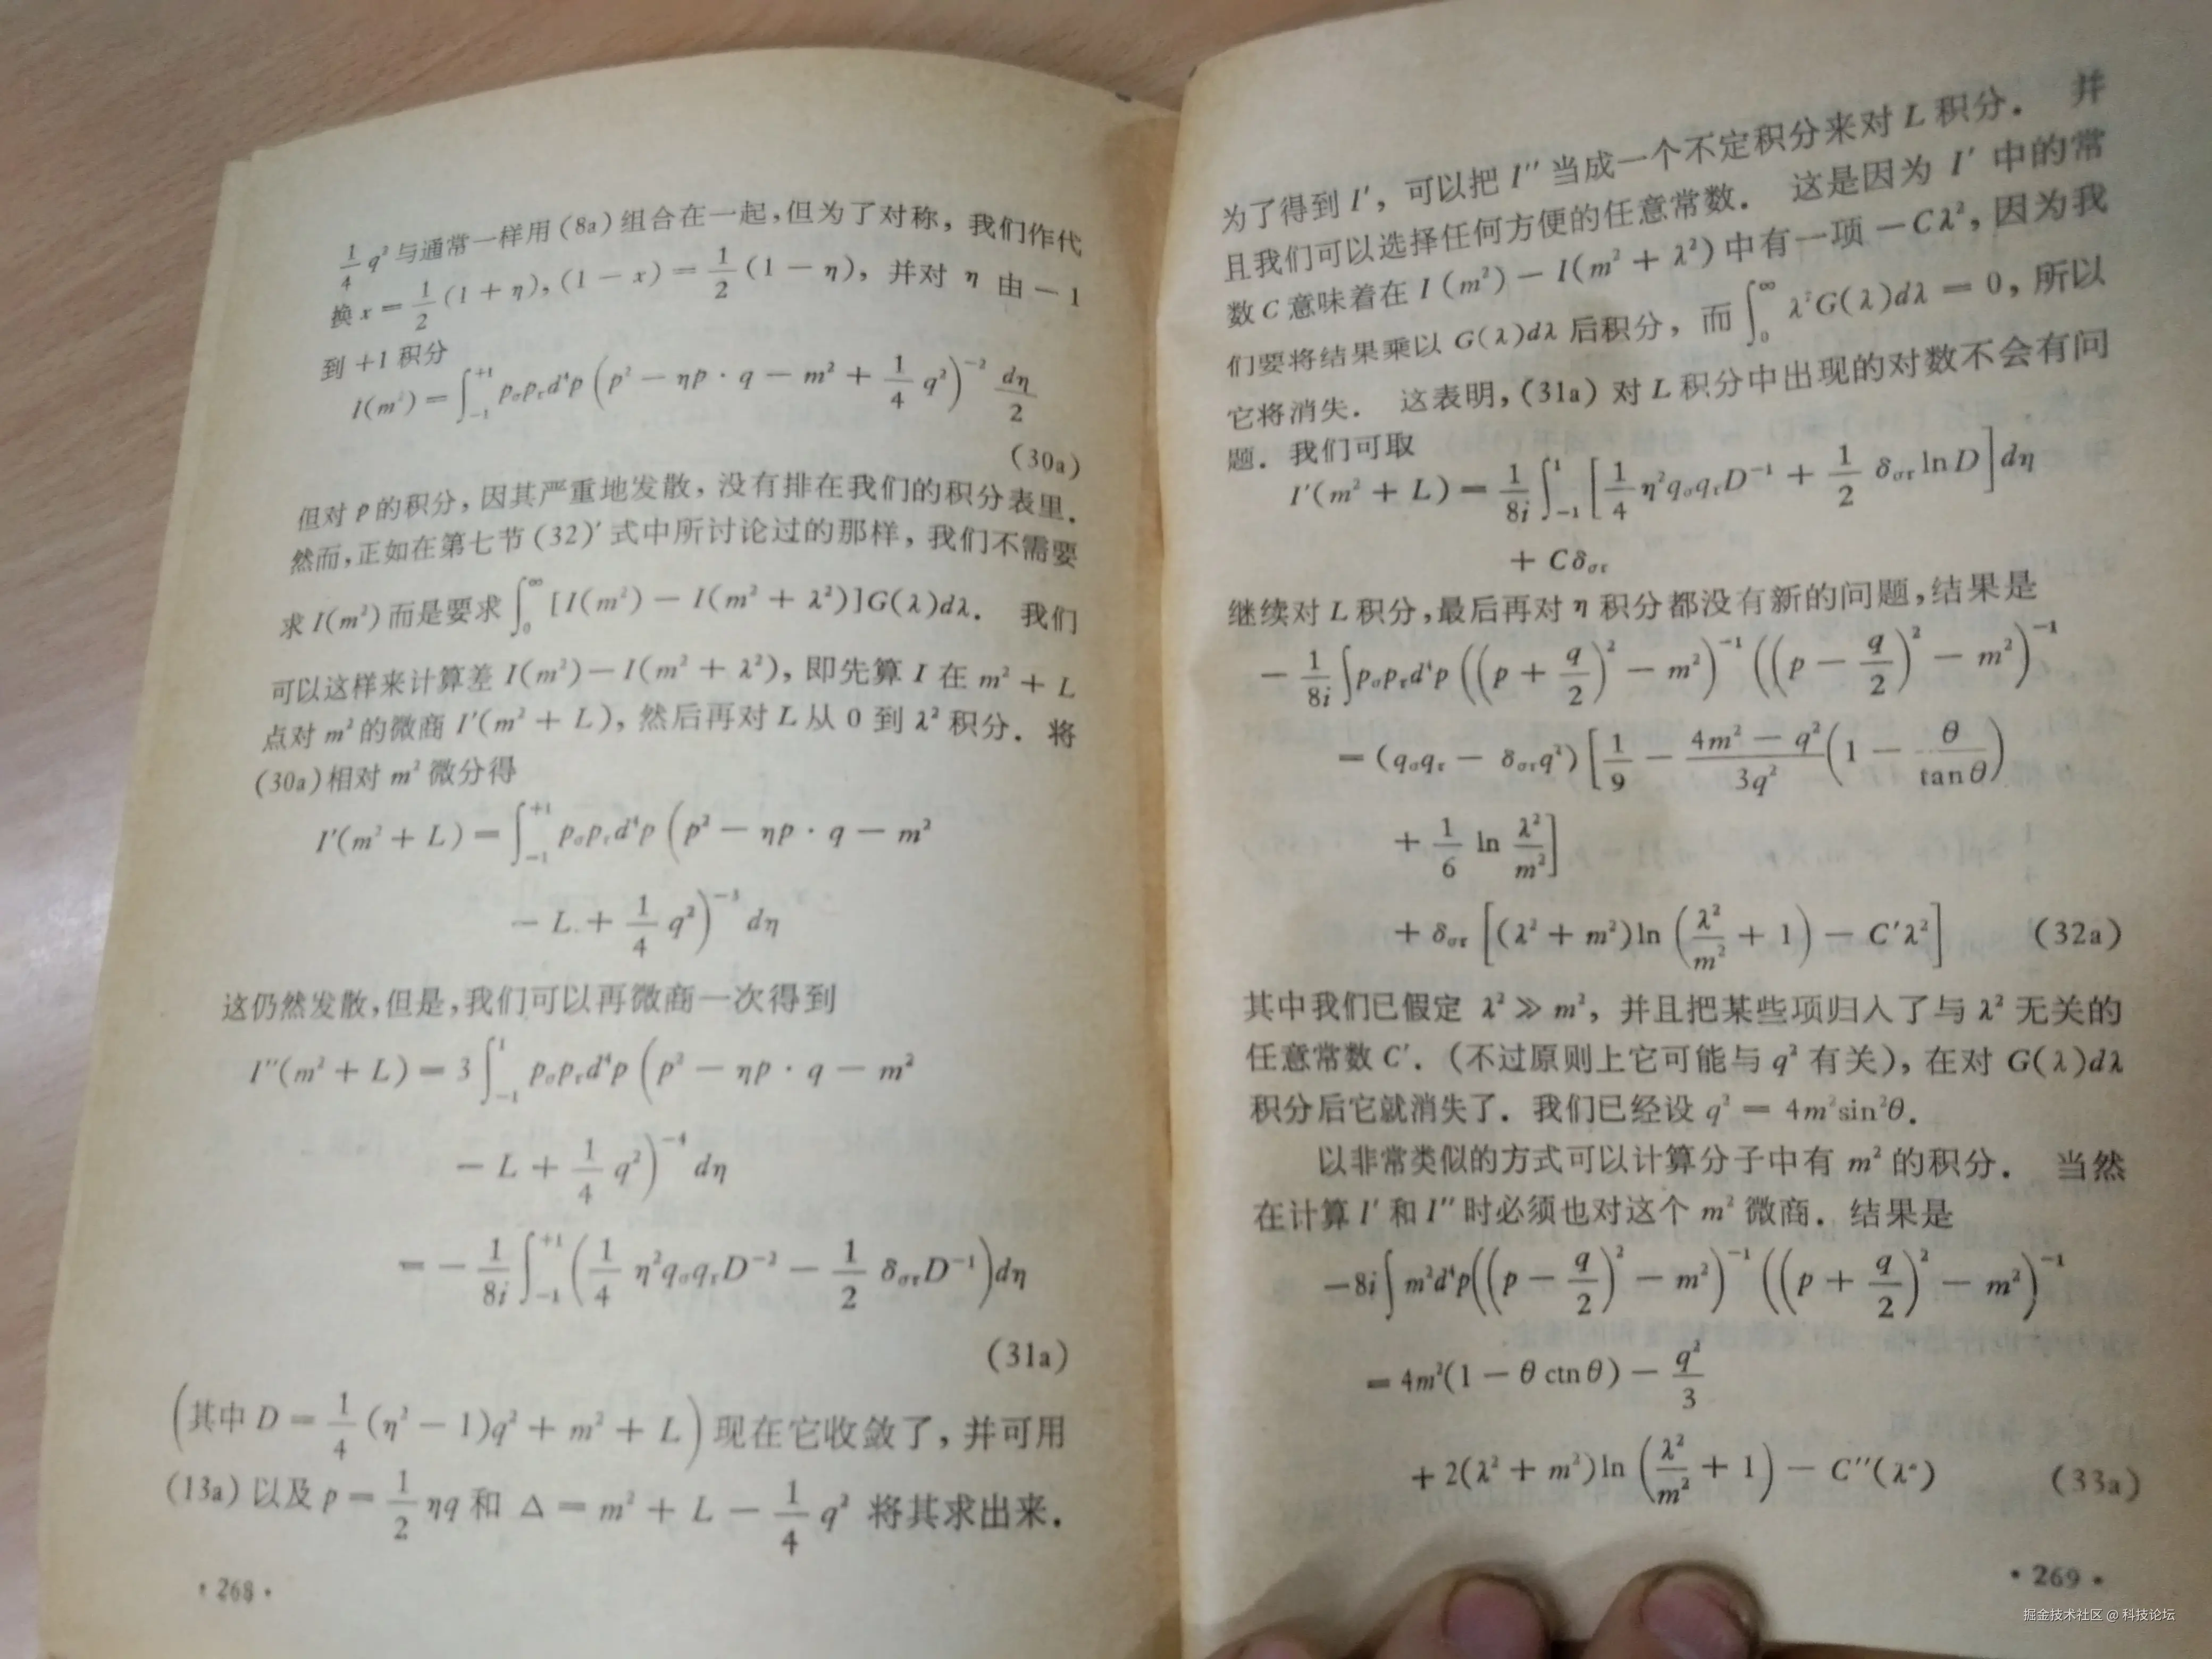 1/4 q² 与通常一样用(8a)组合在一起,但为了对称, 我们作代
换 x = 1/2 (1 + η), (1 − x) = 1/2 (1 − η), 并对 η 由 −1
到 +1 积分
I(m²) = ∫₋₁⁺¹ p_σ p_τ d⁴p (p² − ηp · q − m² + 1/4 q²)⁻² dη/2
(30a)
但对 p 的积分, 因其严重地发散, 没有排在我们的积分表里.
然而, 正如在第七节 (32)′ 式中所讨论过的那样, 我们不需要
求 I(m²) 而是要求 ∫₀^∞ [I(m²) − I(m² + λ²)]G(λ)dλ. 我们
可以这样来计算差 I(m²) − I(m² + λ²), 即先算 I 在 m² + L
点对 m² 的微商 I′(m² + L), 然后再对 L 从 0 到 λ² 积分. 将
(30a)相对 m² 微分得
I′(m² + L) = ∫₋₁⁺¹ p_σ p_τ d⁴p (p² − ηp · q − m²
− L + 1/4 q²)⁻³ dη
这仍然发散, 但是, 我们可以再微商一次得到
I″(m² + L) = 3 ∫₋₁¹ p_σ p_τ d⁴p (p² − ηp · q − m²
− L + 1/4 q²)⁻⁴ dη
= − 1/8i ∫₋₁⁺¹ (1/4 η² q_σ q_τ D⁻² − 1/2 δ_στ D⁻¹)dη
(31a)
(其中 D = 1/4 (η² − 1)q² + m² + L) 现在它收敛了, 并可用
(13a) 以及 p = 1/2 ηq 和 Δ = m² + L − 1/4 q² 将其求出来.
· 268 ·
为了得到 I′, 可以把 I″ 当成一个不定积分来对 L 积分. 并
且我们可以选择任何方便的任意常数. 这是因为 I′ 中的常
数 C 意味着在 I(m²) − I(m² + λ²) 中有一项 −Cλ², 因为我
们要将结果乘以 G(λ)dλ 后积分, 而 ∫₀^∞ λ²G(λ)dλ = 0, 所以
它将消失. 这表明, (31a) 对 L 积分中出现的对数不会有问
题. 我们可取
I′(m² + L) = 1/8i ∫₋₁¹ [1/4 η² q_σ q_τ D⁻¹ + 1/2 δ_στ ln D] dη
+ Cδ_στ
继续对 L 积分, 最后再对 η 积分都没有新的问题, 结果是
− 1/8i ∫ p_σ p_τ d⁴p ((p + q/2)² − m²)⁻¹ ((p − q/2)² − m²)⁻¹
= (q_σ q_τ − δ_στ q²) [1/9 − (4m² − q²)/3q² (1 − θ/tanθ)
+ 1/6 ln λ²/m²]
+ δ_στ [(λ² + m²)ln (λ²/m² + 1) − C′λ²] (32a)
其中我们已假定 λ² ≫ m², 并且把某些项归入了与 λ² 无关的
任意常数 C′. (不过原则上它可能与 q² 有关), 在对 G(λ)dλ
积分后它就消失了. 我们已经设 q² = 4m²sin²θ.
以非常类似的方式可以计算分子中有 m² 的积分. 当然
在计算 I′ 和 I″ 时必须也对这个 m² 微商. 结果是
−8i ∫ m²d⁴p((p − q/2)² − m²)⁻¹ ((p + q/2)² − m²)⁻¹
= 4m²(1 − θ ctn θ) − q²/3
+ 2(λ² + m²)ln (λ²/m² + 1) − C″(λ²) (33a)
· 269 ·
掘金技术社区 @ 科技论坛